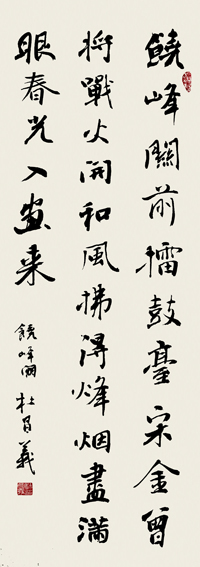 饒峰關前擂鼓臺宋金曾
將戰火開和風拂得烽烟盡滿
眼春光入画来
饒峰關 杜昌義